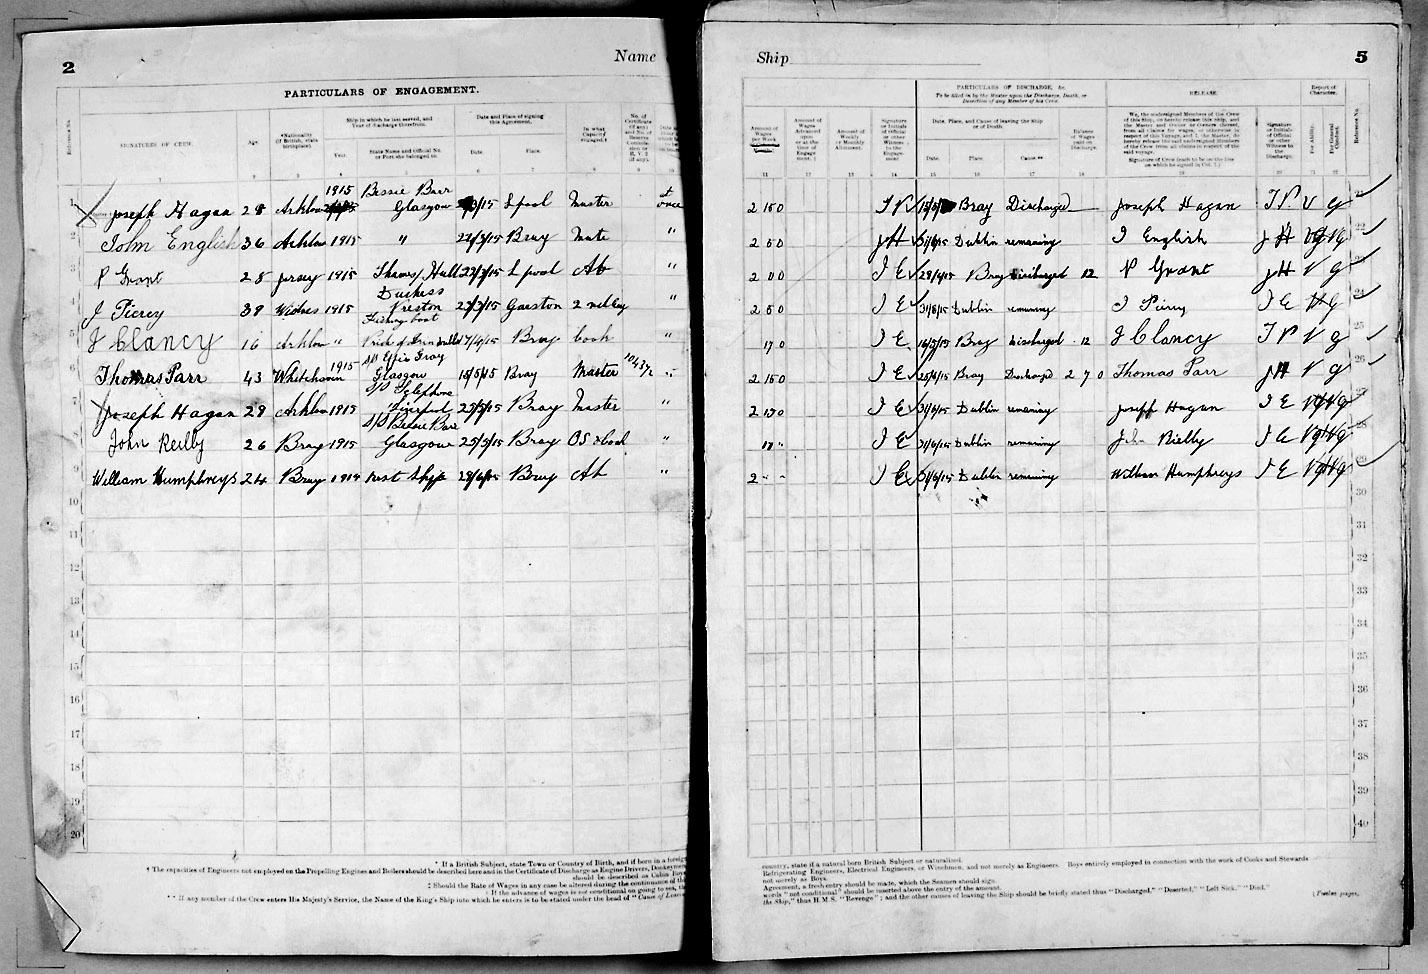 2
Name
PARTICULARS OF ENGAGEMENT.
Reference No.
SIGNATURES OF CREW.
Age.
*Nationality (If British, state birthplace).
Ship in which he last served, and Year of discharge therefrom.
Year.
State Name and Official No. or Port she belonged to.
Date and Place of signing this Agreement.
Date.
Place.
In what Capacity engaged.†
No. of Certificate (if any)
1 2 3 4 5 6 7 8 9 10
1 Joseph Hagan 28 Arklow 1915 Bessie Barr Glasgow /3/15 Lpool Master at once
2 John English 36 Arklow 1915 " 22/3/15 Bray Mate "
3 P Grant 28 Jersey 1915 Hull 22/3/15 Lpool Ab "
4 J Pierey 38 Widnes 1915 Duchess Preston 22/3/15 Garston 2nd Eng "
5 J Clancy 16 Arklow " Fishing boat Pride of 17/4/15 Bray cook "
6 Thomas Parr 43 Whitehaven 1915 S/S Effie Gray Glasgow 15/5/15 Bray Master "
7 Joseph Hagan 29 Arklow 1915 S/S Liverpool 25/5/15 Bray Master "
8 John Reilly 26 Bray 1915 S/S Bessie Barr Glasgow 25/5/15 Bray OS & Cook "
9 William Humphreys 24 Bray 1914 first ship 28/6/15 Bray Ab "
10
11
12
13
14
15
16
17
18
19
20
* If a British Subject, state Town or Country of Birth, and if born in a foreign
† The capacities of Engineers not employed on the Propelling Engines and Boilers should be described here and in the Certificate of Discharge as Engine Drivers, Donkeymen
should be described as Cabin Boys
‡ Should the Rate of Wages in any case be altered during the continuance of the
If the advance of wages is not conditional on going to sea, the
** If any member of the Crew enters His Majesty's Service, the Name of the King's Ship into which he enters is to be stated under the head of "Cause of Leaving
Ship
5
PARTICULARS OF DISCHARGE, &c.
To be filled in by the Master upon the Discharge, Death, or Desertion of any Member of his Crew.
RELEASE.
Report of Character.
Amount of Wages per
Amount of Wages Advanced upon or at the time of Engagement.
Amount of Weekly or Monthly Allotment.
Signature or Initials of Official or other Witness to the Engagement
Date, Place, and Cause of leaving the Ship or of Death.
Date.
Place.
Cause.**
Balance of Wages paid on Discharge.
We, the undersigned Members of the Crew of this Ship, do hereby release this ship, and the Master and Owner or Owners thereof, from all Claims for wages, or otherwise in respect of this Voyage, and I, the Master, do hereby release the said undersigned Members of the Crew from all claims in respect of the said voyage.
Signature of Crew (each to be on the line on which he signed in Col. 1.)
Signature or Initials of Official or other Witness to the Discharge.
For Ability.
For General Conduct.
Reference No.
11 12 13 14 15 16 17 18 19 20 21 22
2 15 0 T P Bray Discharged Joseph Hagan T P V G
2 5 0 J H 31/6/15 Dublin remaining J English J H VG VG
2 0 0 J E 28/4/15 Bray Discharged 12 P Grant J H V G
2 5 0 J E 31/6/15 Dublin remaining J Pierey J E VG
17 0 J E 16/5/15 Bray Discharged 12 J Clancy T P V G
2 15 0 J E 25/5/15 Bray Discharged 2 7 0 Thomas Parr J H V G
2 15 0 J E 31/6/15 Dublin remaining Joseph Hagan J E VG VG
17 " J E 31/6/15 Dublin remaining John Rielly J E VG VG
2 - - J E 31/6/15 Dublin remaining William Humphreys J E VG VG
30
31
32
33
34
35
36
37
38
39
40
country, state if a natural born British Subject or naturalized.
Refrigerating Engineers, Electrical Engineers, or Winchmen, and not merely as Engineers. Boys entirely employed in connection with the work of Cooks and Stewards
not merely as Boys.
Agreement, a fresh entry should be made, which the Seamen should sign.
words "not conditional" should be inserted above the entry of the amount.
the Ship," thus H.M.S. "Revenge"; and the other names of leaving the Ship should be briefly stated thus "Discharged," "Deserted," "Left Sick," "Died."
(Twelve pages.